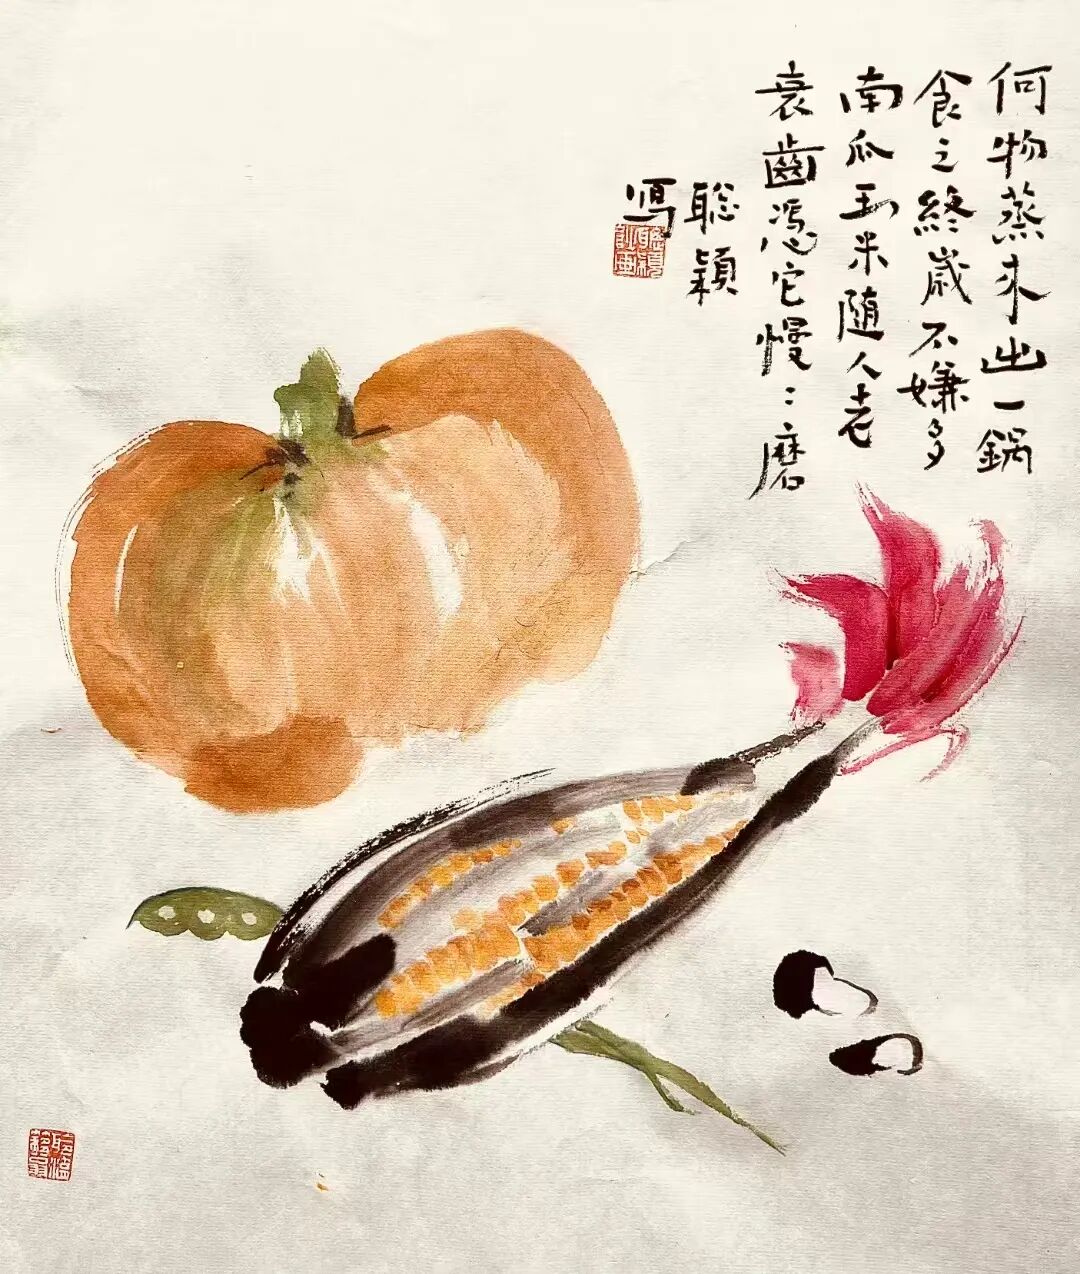 何物蒸来出一鍋
食之終歲不嫌多
南瓜玉米隨人老
衰齒憑它慢〻磨
聡颖
寫